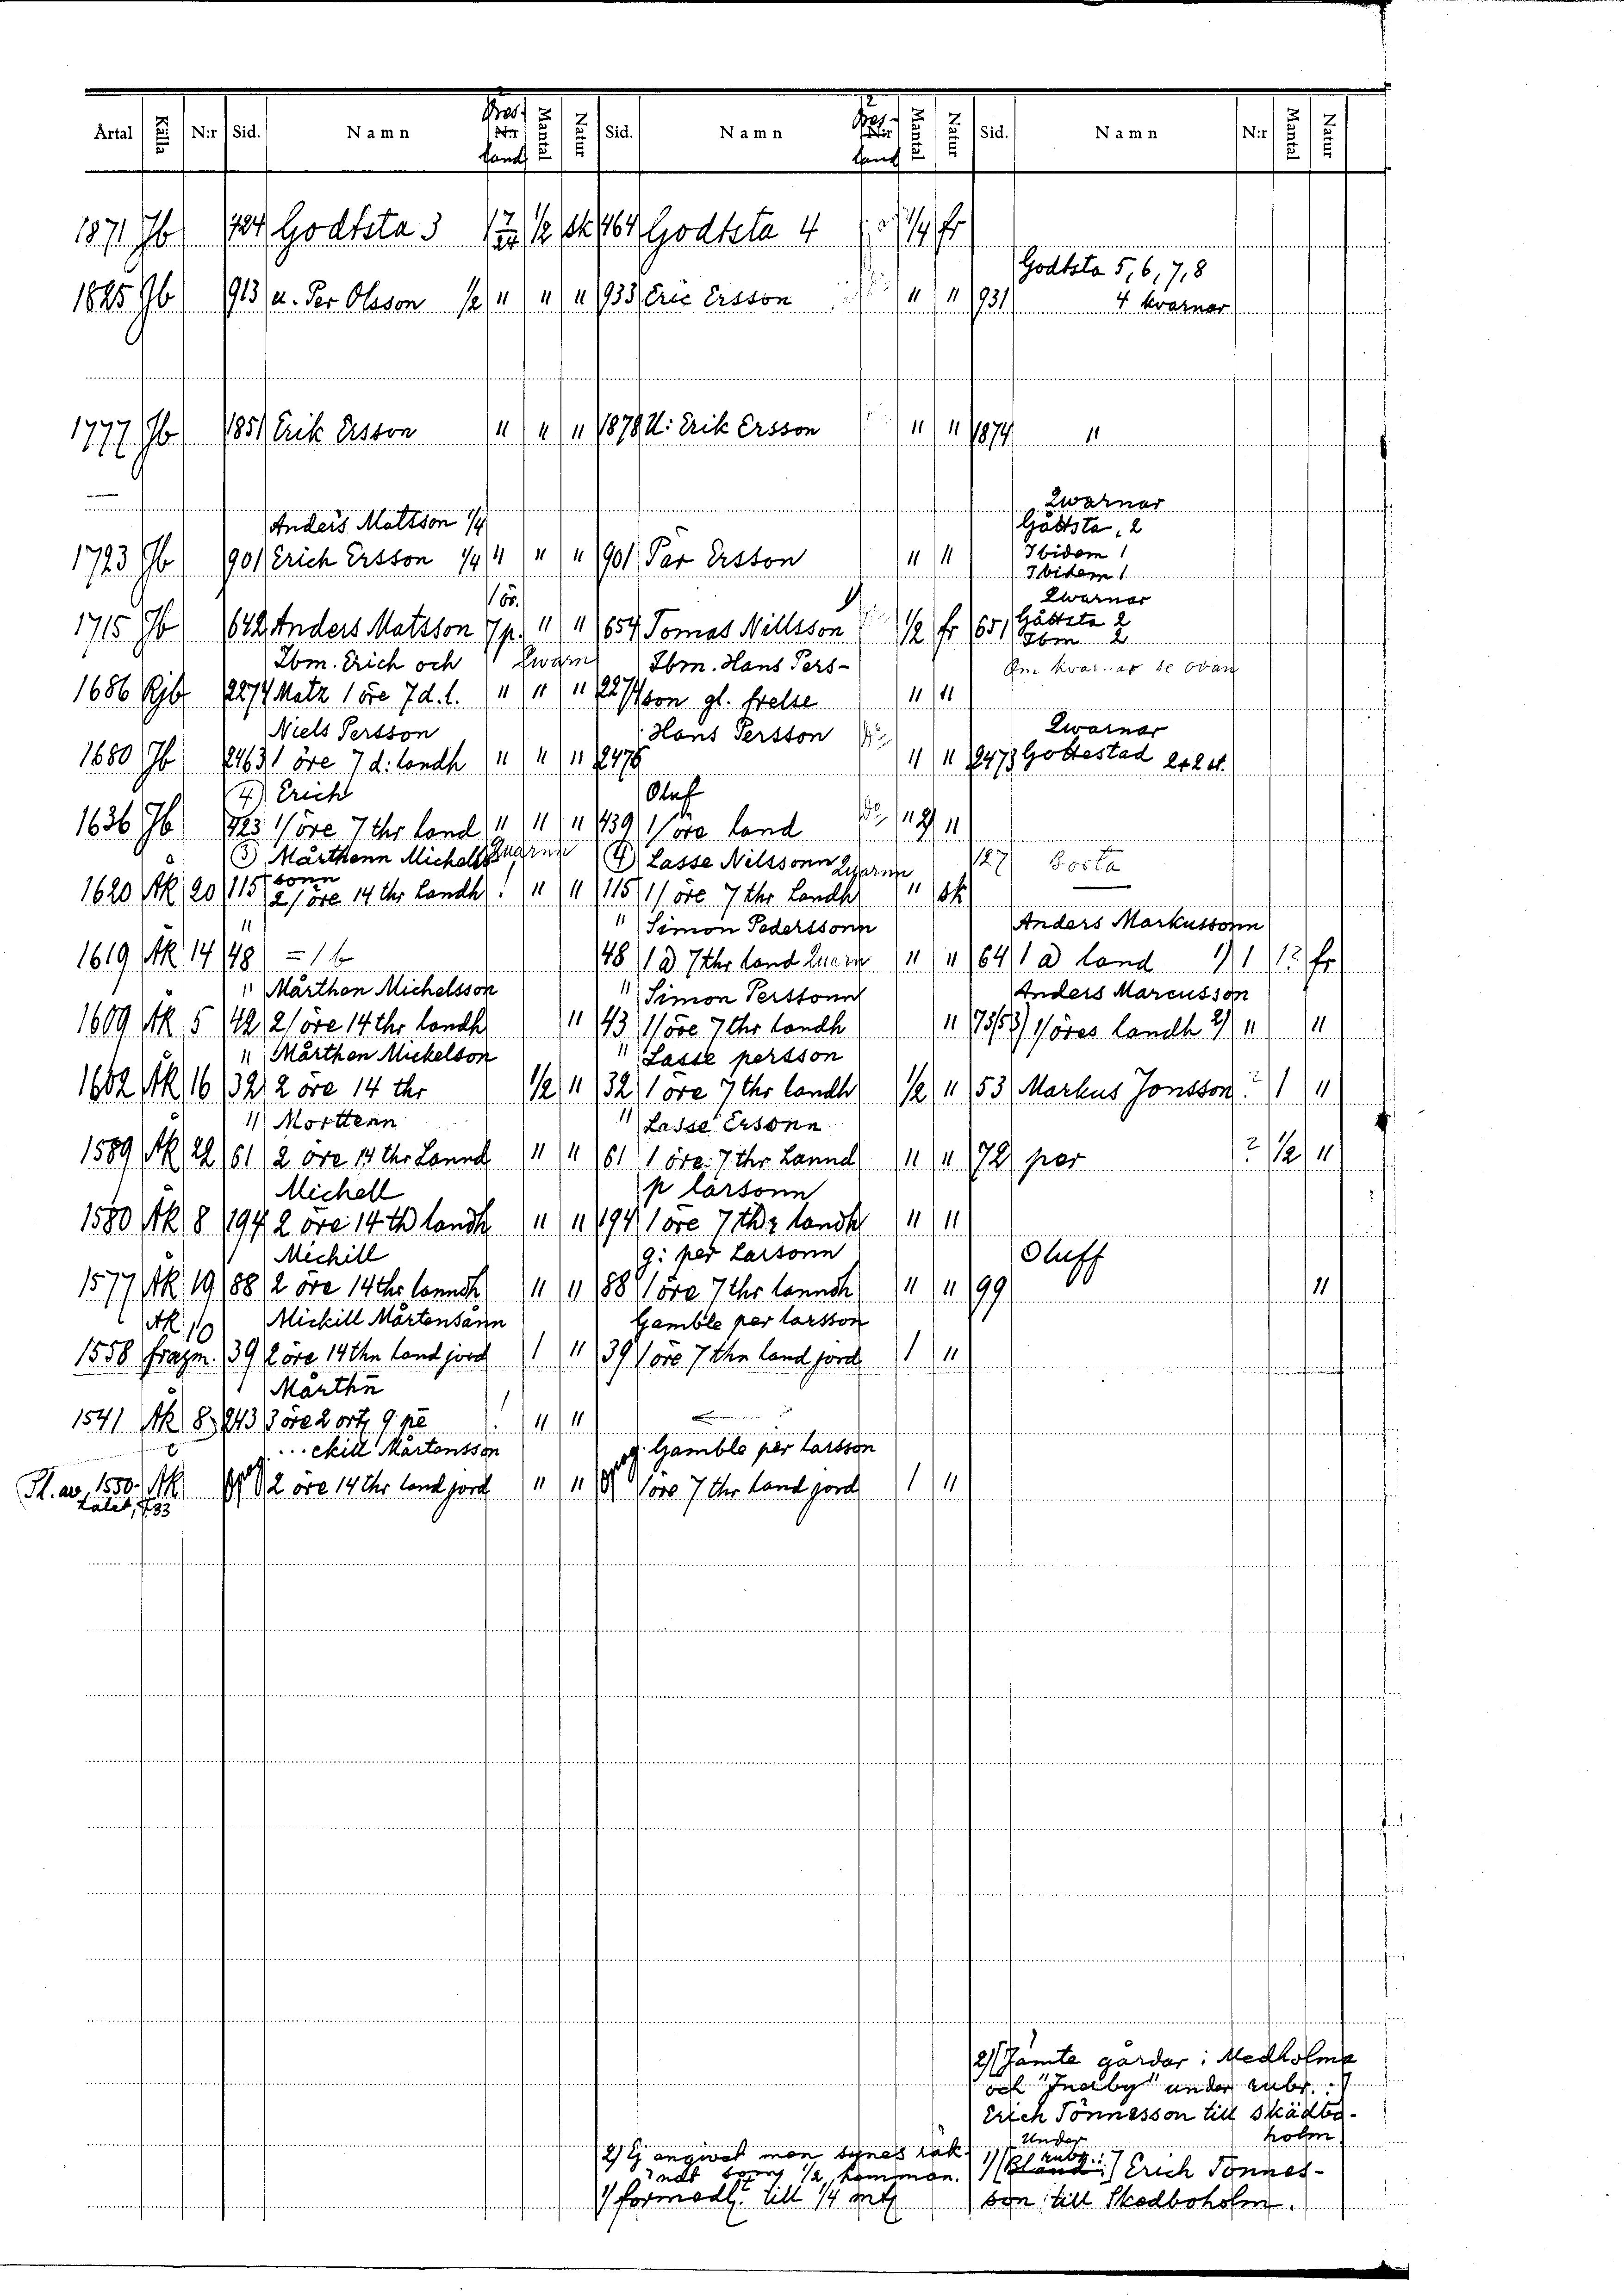 Årtal Källa N:r Sid. Namn land Mantal Natur Sid. Namn land Mantal Natur Sid. Namn N:r Mantal Natur
1871 Jb 724 Godtsta 3 1/2 sk 464 Godtsta 4 1/4 fr
Godtsta 5, 6, 7, 8
1825 Jb 913 u. Per Olsson 1/2 " " " 933 Eric Ersson " " 931 4 kvarnar
1777 Jb 1851 Erik Ersson " " " 1878 U: Erik Ersson " " 1874 "
Anders Mattson 1/4 Qwarnar
Gättsta, 2
1723 Jb 901 Erich Ersson 1/4 " " " 901 Pär Ersson " " Ibidem 1
Ibidem 1
1 ör. 1) Qwarnar
1715 Jb 642 Anders Matsson 7 p. " " 654 Tomas Nillsson 1/2 fr 651 Gättsta 2
Ibm 2
Ibm. Erich och Qwarn Ibm. Hans Pers- Om kvarnar se ovan
1686 Rjb 2274 Matz 1 öre 7 d. l. " " " 2277 son gl. frelse " "
Niels Persson Hans Persson Qwarnar
1680 Jb 2463 1 öre 7 d: landh " " " 2476 " " 2473 Gottestad 2+2 st.
4) Erich Oluf
1636 Jb 423 1/ öre 7 thr land " " " 439 1/ öre land " 2) "
3) Mårthenn Michels Quarnn 4) Lasse Nilssonn Quarnn 127 Borta
sonn
1620 Åk 20 115 2/ öre 14 thr Landh " " 115 1/ öre 7 thr Landh " sk
" " Simon Pederssonn Anders Markussonn
1619 Åk 14 48 = 1 b 48 1 a 7 thr land Quarn " " 64 1 a land 1) 1 fr
" Mårthen Michelsson " Simon Perssonn Anders Marcusson
1609 Åk 5 42 2/ öre 14 thr landh " 43 1/ öre 7 thr landh " 73(53) 1/ öres landh 2) " "
" Mårthen Mickelson " Lasse persson
1602 Åk 16 32 2 öre 14 thr 1/2 " 32 1 öre 7 thr landh 1/2 " 53 Markus Jonsson ? 1 "
" Morttenn " Lasse Ersonn
1589 Åk 22 61 2 öre 14 thr Lannd " " 61 1 öre 7 thr Lannd " " 72 per ? 1/2 "
Michell p larsonn
1580 Åk 8 194 2 öre 14 th landh " " 194 1 öre 7 thr landh " "
Michill g: per Larsonn Oluff
1577 Åk 19 88 2 öre 14 thr lanndh " " 88 1 öre 7 thr lanndh " " 99 "
Åk 10 Mickill Mårtensånn Gamble per larsson
1558 fragm. 39 2 öre 14 thn land jord 1 " 39 1 öre 7 thn land jord 1 "
Mårthn
1541 Åk 8 243 3 öre 2 ort 9 pe " "
...chill Mårtensson Gamble per larsson
Sl. av 1550- Åk 2 öre 14 thr land jord " " 1 öre 7 thr land jord 1 "
talet,
2) Jämte gårdar i Medholma
och "Inerby" under rubr.:
Erich Tönnesson till Skädbo-
holm
2) Ej angivet men synes räk-
nat som 1/2 hemman.
1) förmedl. till 1/4 mtl
1) Under rubr.: Bland: Erich Tönnes-
son till Skedboholm.